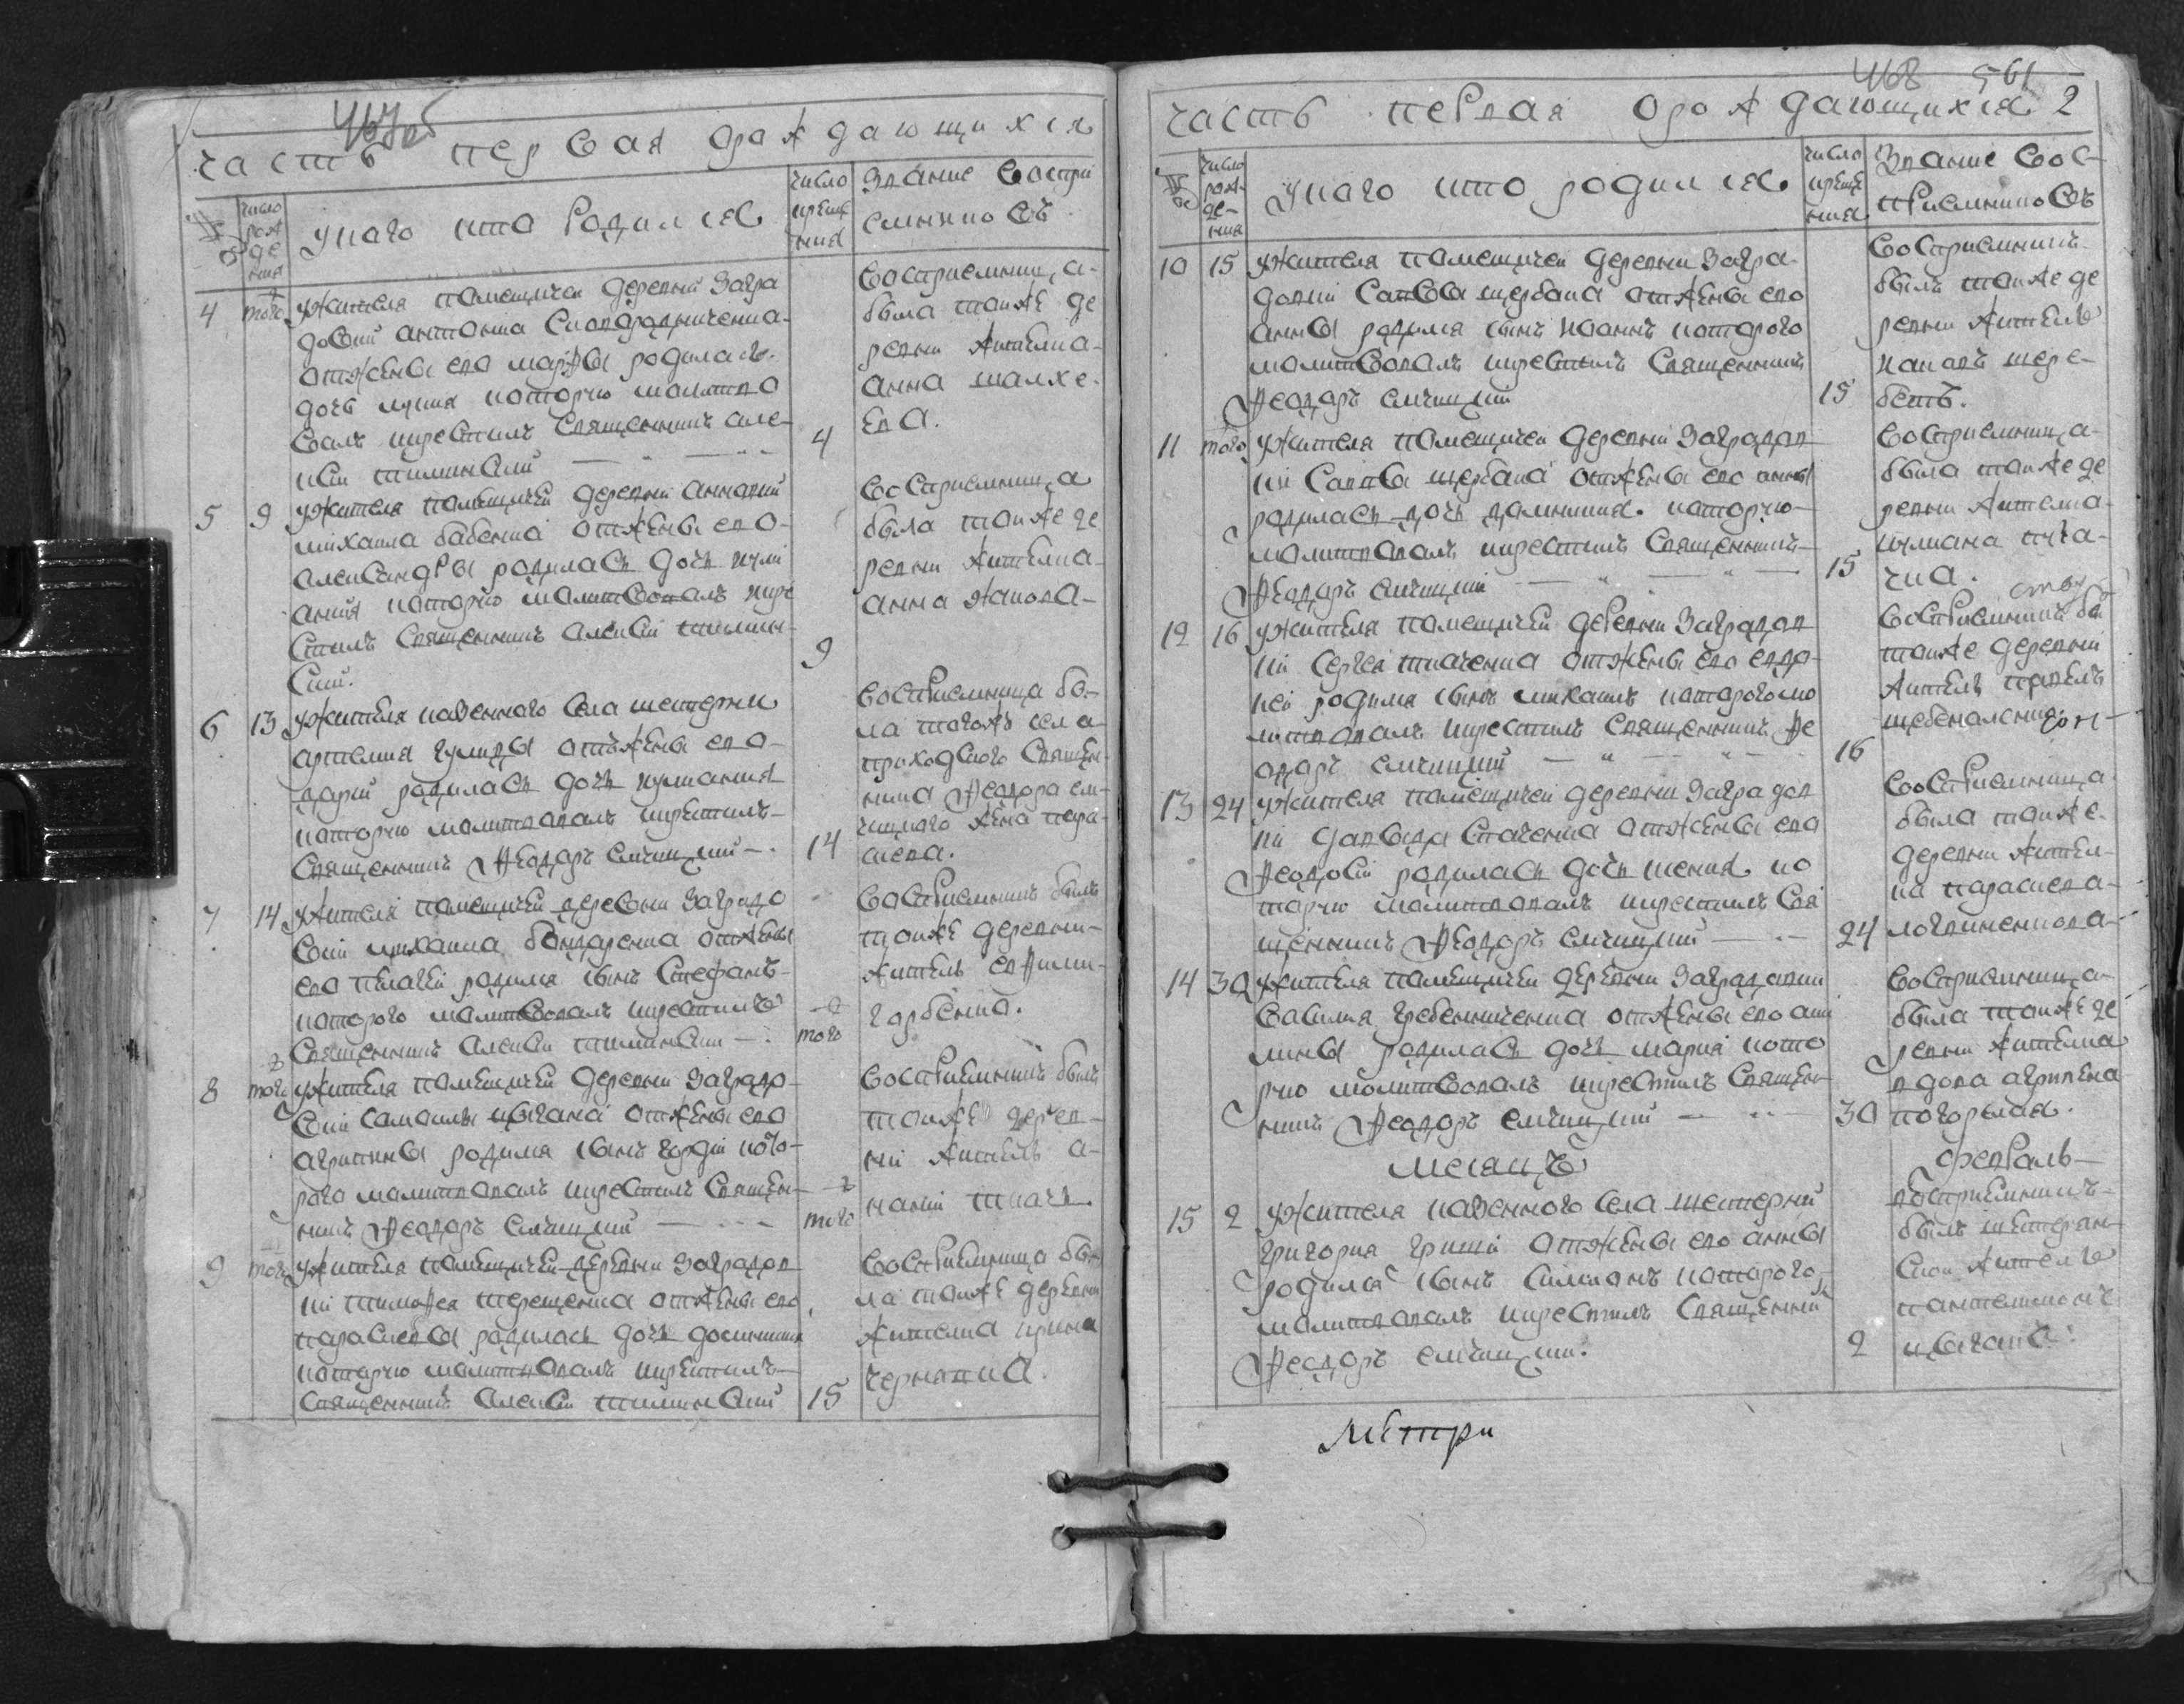 467об
часть первая о рождающихся
№
число рождения
у каго кто родился
число крещения
звание восприемниковъ
4 того
ужителя помещичей деревни Загра
довки антона
отжены его марфы родилась
дочь которую молитво
валъ крестилъ священникъ алек
сій тилинскій
4
восприемница
была тояже де
ревни жителка
анна шалхе
ева.
5 9
ужителя помещичей деревни анновки
михаила бабенка отжены его
александры родилась дочь иули
анія которую молитвовалъ кре
стилъ священникъ алексій тилин
скій.
9
восприемница
была тояже де
ревни жителка
анна
6 13
ужителя казенного села шестерни
артемия гулиды отжены его
дарии родилась дочь иулиания
которую молитвовалъ крестилъ
священникъ Феодоръ елчицкий
14
восприемница бы
ла тогожъ села
приходского священ
ника Феодора ел
чицкого жена пара
скева.
7 14
ужителя помещичей деревни Заградо
вки михаила бондаренка отжены
его пелагеи родился сынъ Стефанъ
которого молитвовалъ крестилъ
священникъ алексій тилинскій
того
восприемникъ былъ
тояже деревни
житель ефимъ
горбенко.
8 того
ужителя помещичей деревни Заградо
вки самойлы цыгана отжены его
агрипины родился сынъ гордій кото
рого молитвовалъ крестилъ священ
никъ Феодоръ елчицкий
того
восприемникъ былъ
тояже дерев
ни житель а
наній ткачъ
9 того
ужителя помещичей деревни Заградов
ки тимофея терещенка отжены его
параскевы родилась дочь досикия
которую молитвовалъ крестилъ
священникъ алексій тилинскій
15
восприемница бы
ла тояже деревни
жителка ирина
468 561
часть первая о рождающихся 2
№
число рождения
у каго кто родился
число крещения
звание восприемниковъ
10 15
ужителя помещичей деревни Загра
довки Саввы щербака отжены его
анны родился сынъ иоаннъ которого
молитвовалъ крестилъ священникъ
Феодоръ елчицкий
15
восприемникъ
былъ тояже де
ревни житель
шере
бетъ.
11 того
ужителя помещичей деревни Заградов
ки Саввы щербака отжены его анны
родилась дочь домникия которую
молитвовалъ крестилъ священникъ
Феодоръ елчицкий
15
восприемница
была тояже де
ревни жителка
иулиана
12 16
ужителя помещичей деревни Заградов
ки Сергея ткаченка отжены его евдо
кеи родился сынъ михаилъ которого мо
литвовалъ крестилъ священникъ Фе
одоръ елчицкий
16
восприемникъ бы
тояже деревни
житель павелъ
13 24
ужителя помещичей деревни Заградов
ки давыда Стаченка отжены его
Феодосіи родилась дочь ксения ко
торую молитвовалъ крестилъ свя
щенникъ Феодоръ елчицкий
24
восприемница
была тояже
деревни жител
ка параскева
логвиненкова
14 30
ужителя помещичей деревни Заградовки
василия гребенниченка отжены его аки
лины родилась дочь мария кото
рую молитвовалъ крестилъ священ
никъ Феодоръ елчицкий
30
восприемница
была тояже де
ревни жителка
вдова агрипена
погорелая.
месяцъ февраль
15 2
ужителя казенного села шестерни
григория гриши отжены его анны
родился сынъ симеонъ которого
молитвовалъ крестилъ священникъ
Феодоръ елчицкий.
2
восприемникъ
былъ шестерян
ский житель
пантелимонъ
цыганъ.
метри